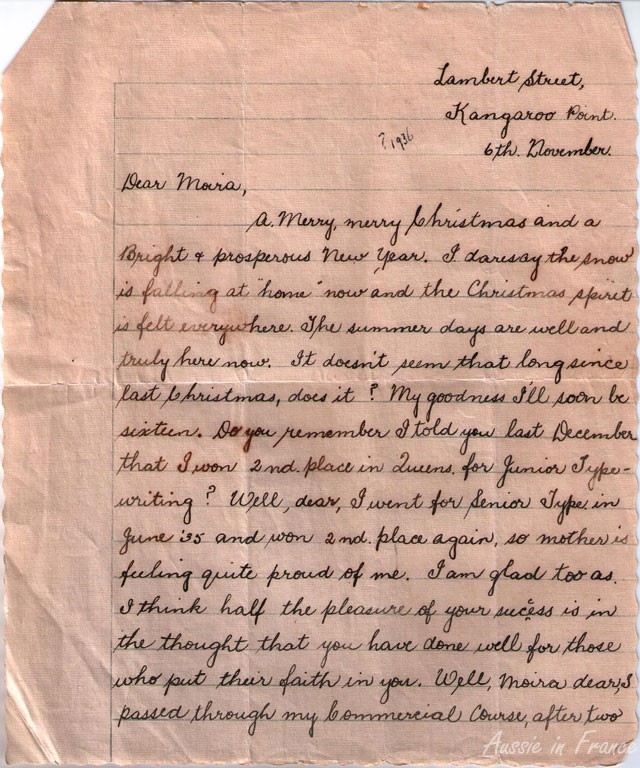 Lambert Street,
Kangaroo Point.
? 1936
6th. November.
Dear Moira,
A. Merry, merry Christmas and a
Bright & prosperous New Year. I daresay the snow
is falling at "home" now and the Christmas spiret
is felt everywhere. The summer days are well and
truly here now. It doesn't seem that long since
last Christmas, does it? My goodness I'll soon be
sixteen. Do you remember I told you last December
that I won 2nd. place in Queens. for Junior Type-
writing? Well, dear, I went for Senior Type. in
June '35 and won 2nd. place again, so mother is
feeling quite proud of me. I am glad too as.
I think half the pleasure of your sucess is in
the thought that you have done well for those
who put their faith in you. Well, Moira dear, I
passed through my Commercial Course, after two
Aussie in France